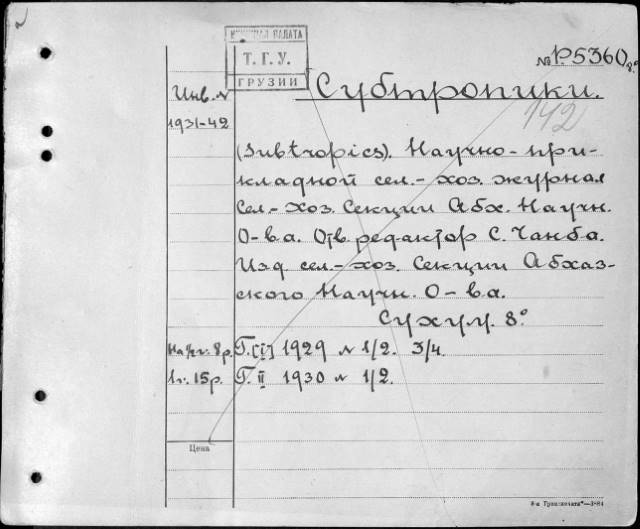 КНИЖНАЯ ПАЛАТА
Т. Г. У.
ГРУЗИИ
№ P.5360
Субтропики.
142
Инв. №
1931-42
(Subtropics). Научно-при-
кладной сел.-хоз. журнал
Сел.-хоз. Секции Абх. Научн.
О-ва. Отв. редактор С. Чанба.
Изд. сел.-хоз. Секции Абхаз-
ского Научн. О-ва.
Сухум. 8°
На 1/2 г. 8 р. Г. [I] 1929 № 1/2. 3/4.
1 г. 15 р. Г. II 1930 № 1/2.
Цена
3-84